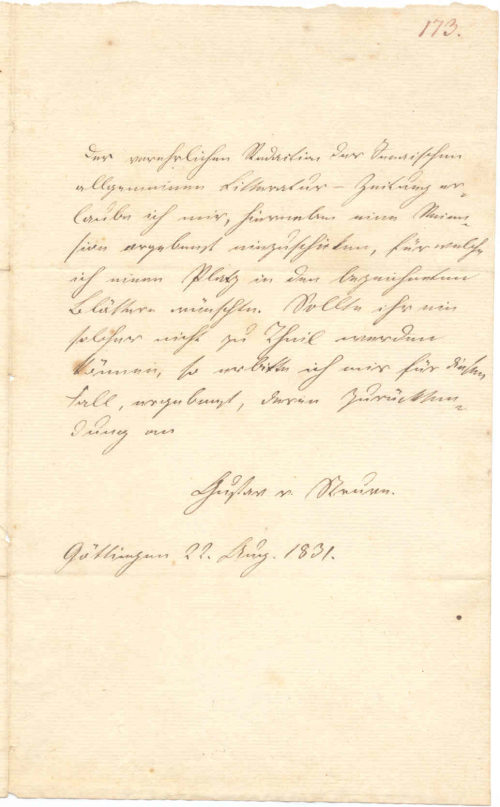 173.
Der verehrlichen Redaction der Jenaischen
allgemeinen Litteratur-Zeitung er-
laube ich mir, hierneben eine Recen-
sion ergebenst einzuschicken, für welche
ich einen Platz in den bezeichneten
Blättern wünschte. Sollte ihr ein
solcher nicht zu Theil werden
können, so erbitte ich mir für diesen
Fall, ergebenst, deren Zurücksen-
dung an
Gustav v. Struve.
Göttingen 22. Aug. 1831.